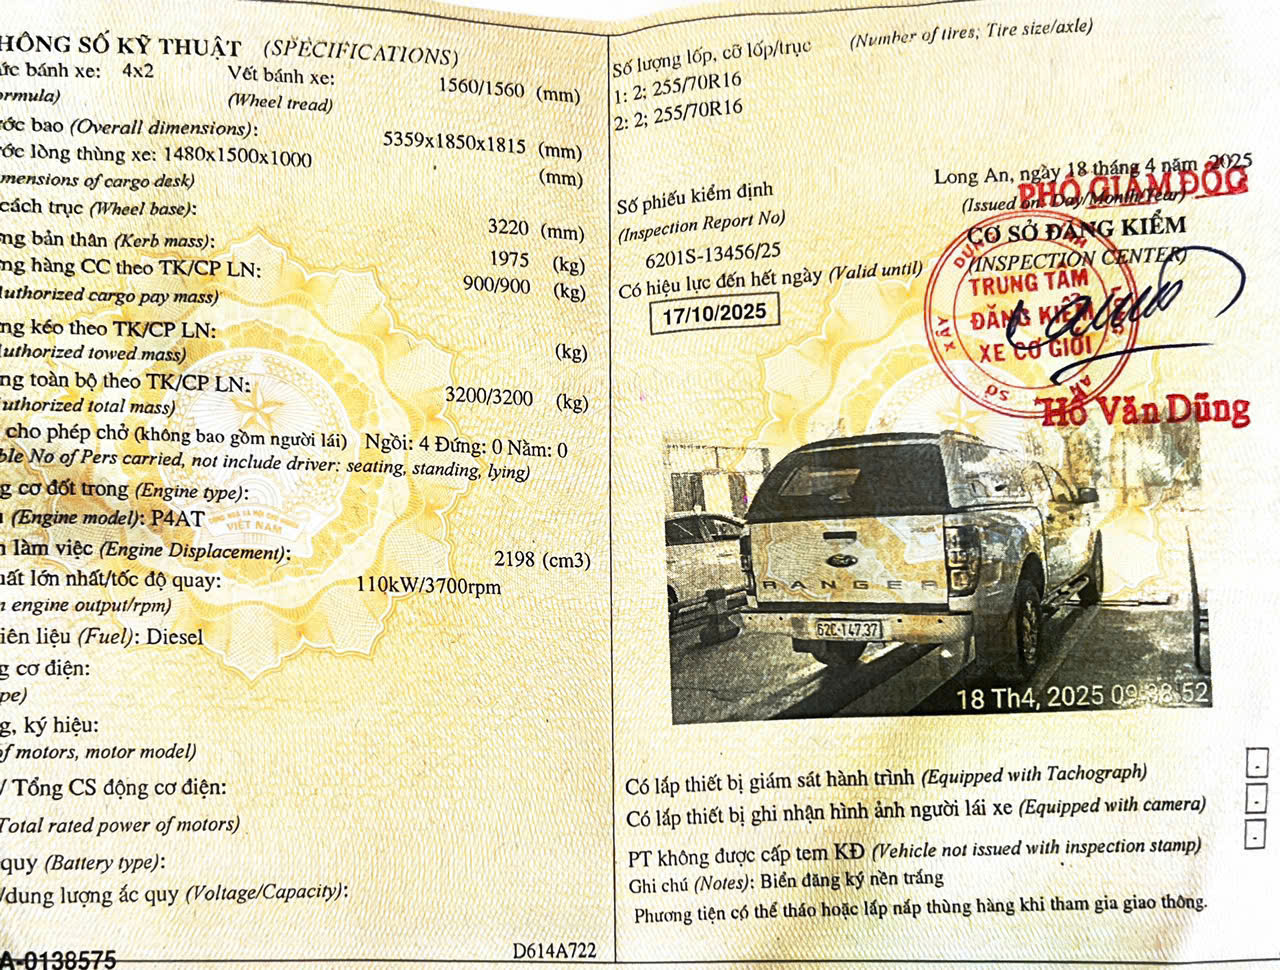 HÔNG SỐ KỸ THUẬT (SPECIFICATIONS)
ức bánh xe: 4x2 Vết bánh xe: 1560/1560 (mm)
ormula) (Wheel tread)
ớc bao (Overall dimensions): 5359x1850x1815 (mm)
ớc lòng thùng xe: 1480x1500x1000 (mm)
mensions of cargo desk)
cách trục (Wheel base): 3220 (mm)
ng bản thân (Kerb mass): 1975 (kg)
ng hàng CC theo TK/CP LN: 900/900 (kg)
uthorized cargo pay mass)
ng kéo theo TK/CP LN: (kg)
uthorized towed mass)
ng toàn bộ theo TK/CP LN: 3200/3200 (kg)
uthorized total mass)
cho phép chở (không bao gồm người lái) Ngồi: 4 Đứng: 0 Nằm: 0
ble No of Pers carried, not include driver: seating, standing, lying)
g cơ đốt trong (Engine type):
(Engine model): P4AT
VIỆT NAM
n làm việc (Engine Displacement): 2198 (cm3)
uất lớn nhất/tốc độ quay: 110kW/3700rpm
n engine output/rpm)
iên liệu (Fuel): Diesel
g cơ điện:
pe)
g, ký hiệu:
of motors, motor model)
/ Tổng CS động cơ điện:
Total rated power of motors)
quy (Battery type):
/dung lượng ắc quy (Voltage/Capacity):
A-0138575
D614A722
Số lượng lốp, cỡ lốp/trục (Number of tires; Tire size/axle)
1: 2; 255/70R16
2: 2; 255/70R16
Long An, ngày 18 tháng 4 năm 2025
(Issued on: Day/Month/Year)
PHÓ GIÁM ĐỐC
Số phiếu kiểm định
(Inspection Report No)
6201S-13456/25
CƠ SỞ ĐĂNG KIỂM
(INSPECTION CENTER)
TRUNG TÂM
ĐĂNG KIỂM
XE CƠ GIỚI
Có hiệu lực đến hết ngày (Valid until)
17/10/2025
Hồ Văn Dũng
RANGER
62C-147.37
18 Th4, 2025 09:38:52
Có lắp thiết bị giám sát hành trình (Equipped with Tachograph) -
Có lắp thiết bị ghi nhận hình ảnh người lái xe (Equipped with camera) -
PT không được cấp tem KĐ (Vehicle not issued with inspection stamp) -
Ghi chú (Notes): Biển đăng ký nền trắng
Phương tiện có thể tháo hoặc lắp nắp thùng hàng khi tham gia giao thông.